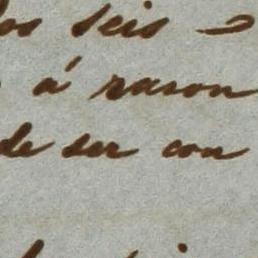 os seis
á rason
de ser con